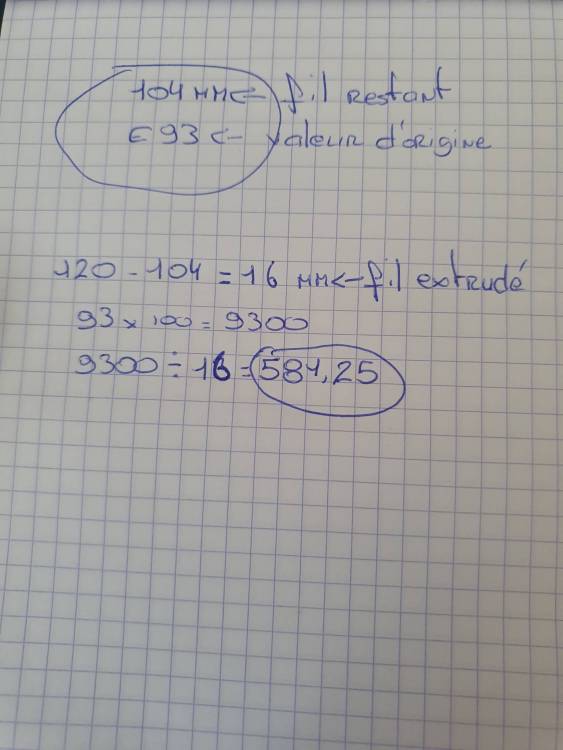 104 мм<- fil restant
E 93 <- valeur d'origine
120 - 104 = 16 мм<- fil extrudé
93 x 100 = 9300
9300 ÷ 16 = 581,25